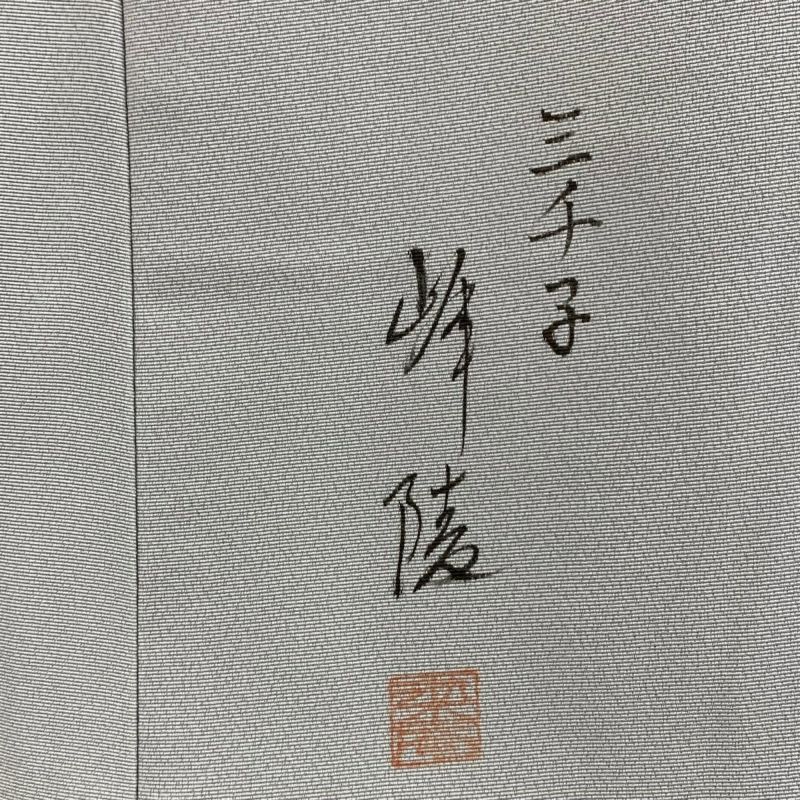 三千子
峰陵